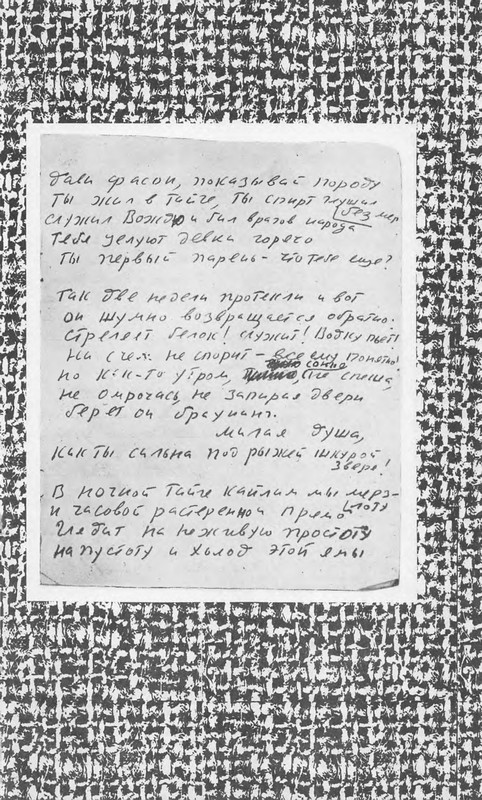 Дави фасон, показывай породу
Ты жил в тайге, ты спирт глушил без мер
служил Вождю и бил врагов народа
Тебя целуют девки горячо
Ты первый парень - что тебе еще?
Так две недели протекли и вот
он шумно возвращается обратно.
Стреляет белок! служит! Водку пьет!
Ни с чем не спорит - все ему понятно!
но как-то утром, сонно не спеша,
не омрачась, не запирая двери
берет он браунинг.
милая душа,
как ты сильна под рыжей шкурой
зверя!
В ночной тайге кайлим мы мерз-
лоту
и часовой растеренной прямо
Глядит на неживую простоту
на пустоту и холод этой ямы